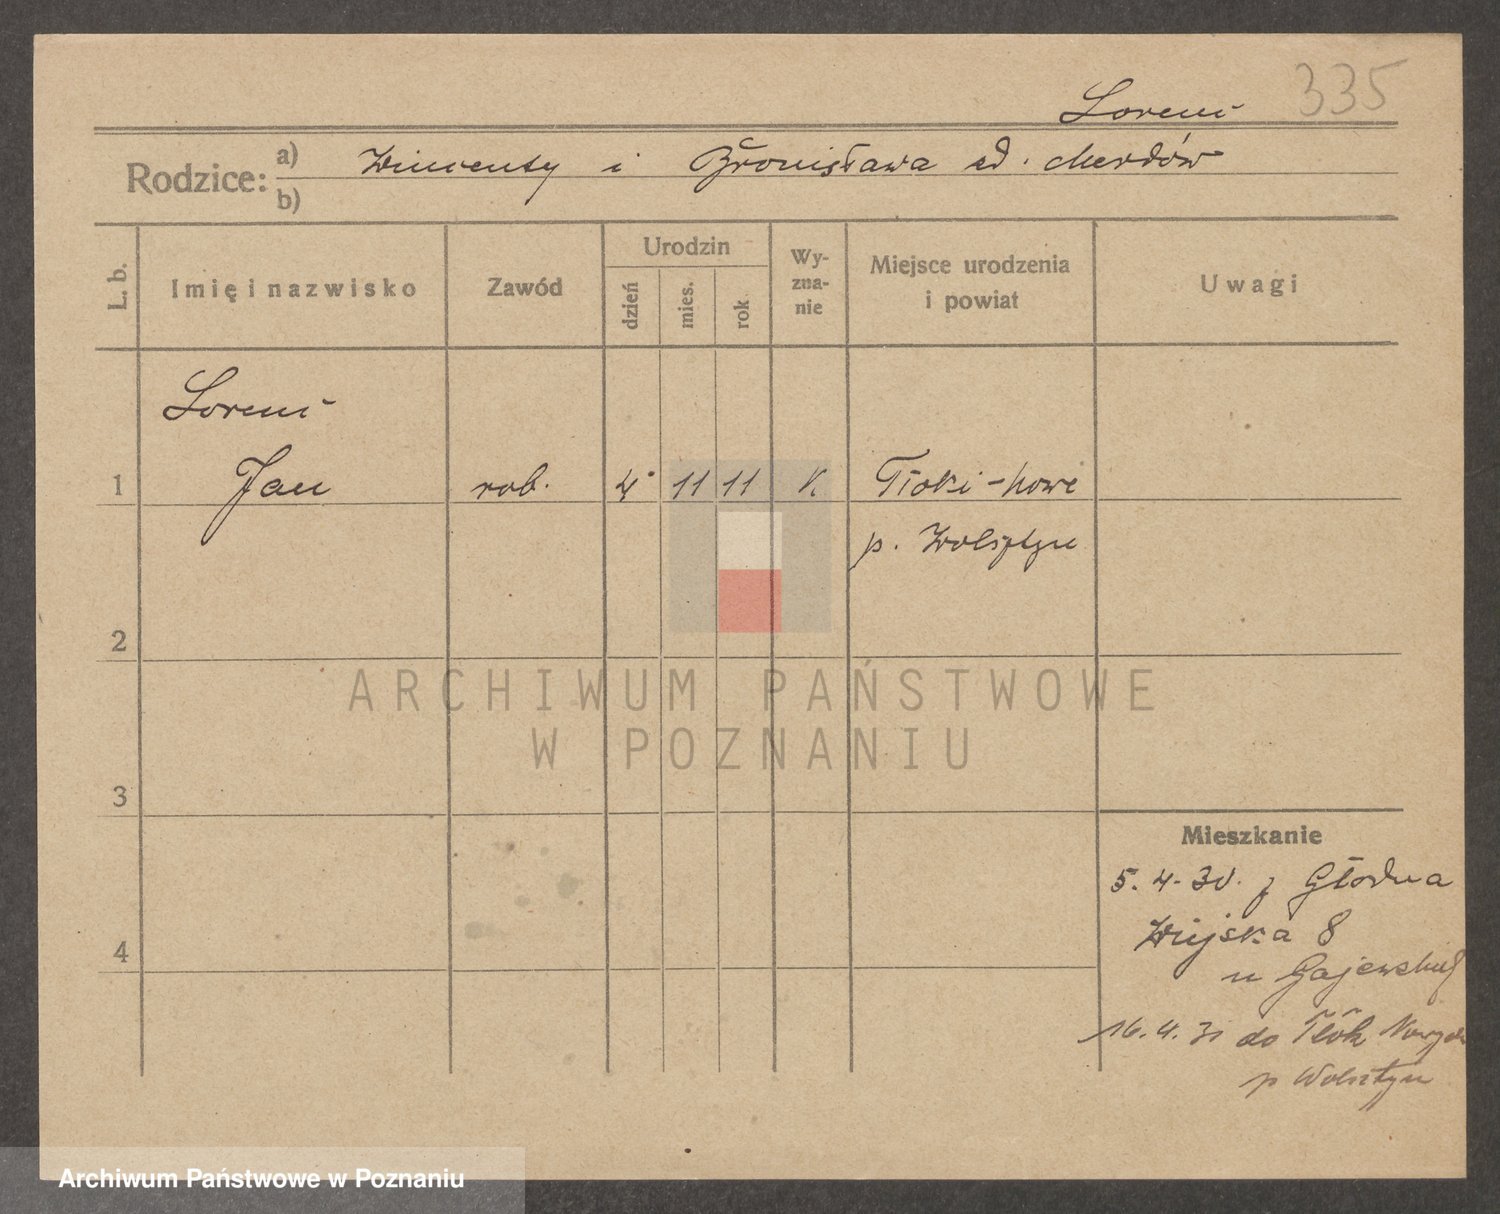 335
Loreni
Rodzice: a) Wincenty i Bronisława ad.
b)
L. b.
Imię i nazwisko
Zawód
Urodzin
dzień
mies.
rok
Wy-
zna-
nie
Miejsce urodzenia
i powiat
Uwagi
Loreni
1 Jan rob. 4 11 11 K Tłoki-Nowe
p. Wolsztyn
2
3
4
ARCHIWUM PAŃSTWOWE
W POZNANIU
Mieszkanie
5.4.30. z Głodna
Wiejska 8
u Gajewskiej
16.4.31 do Tłók Nowych
p Wolsztyn
Archiwum Państwowe w Poznaniu